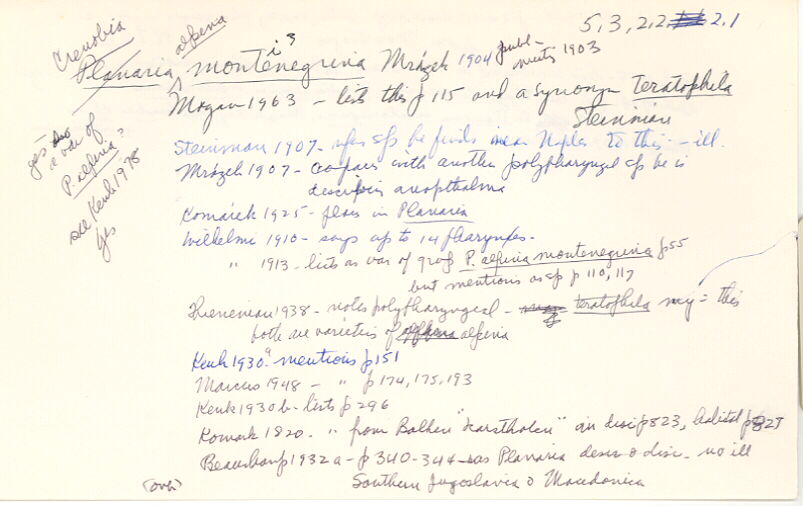 5, 3, 2, 2, 2, 1
Crenobia alpina
Planaria montenegrina Mrázek 1904 publ-
3 1903
Mogan 1963 - lists this p 115 and a synonym Teratophela
Steinman
Steinman 1907 - refers sp he finds near Naples to this - ill.
Mrázek 1907 - compares with another polypharyngel sp he is
describing anopthalma
Komárek 1925 - places in Planaria
Wilhelmi 1910 - says up to 14 pharynxes.
" 1913 - lists as var of group P. alpina montenegrina p 55
but mentions as sp p 110, 117
Thieneman 1938 - notes polypharyngeal - teratophela may = this
both are varieties of alpina
Kenk 1930a - mentions p 151
Marcus 1948 - " p 174, 175, 193
Kenk 1930 b - lists p 296
Komark 1820 - " from Balken "karstholen" in disc p 823, habitat p 827
Beauchamp 1932a - p 340-344 - as Planaria descr & disc - no ill
Southern Jugoslavia & Macedonia
(over)
yes
a var of
P. alpina?
see Kenk 1978
yes